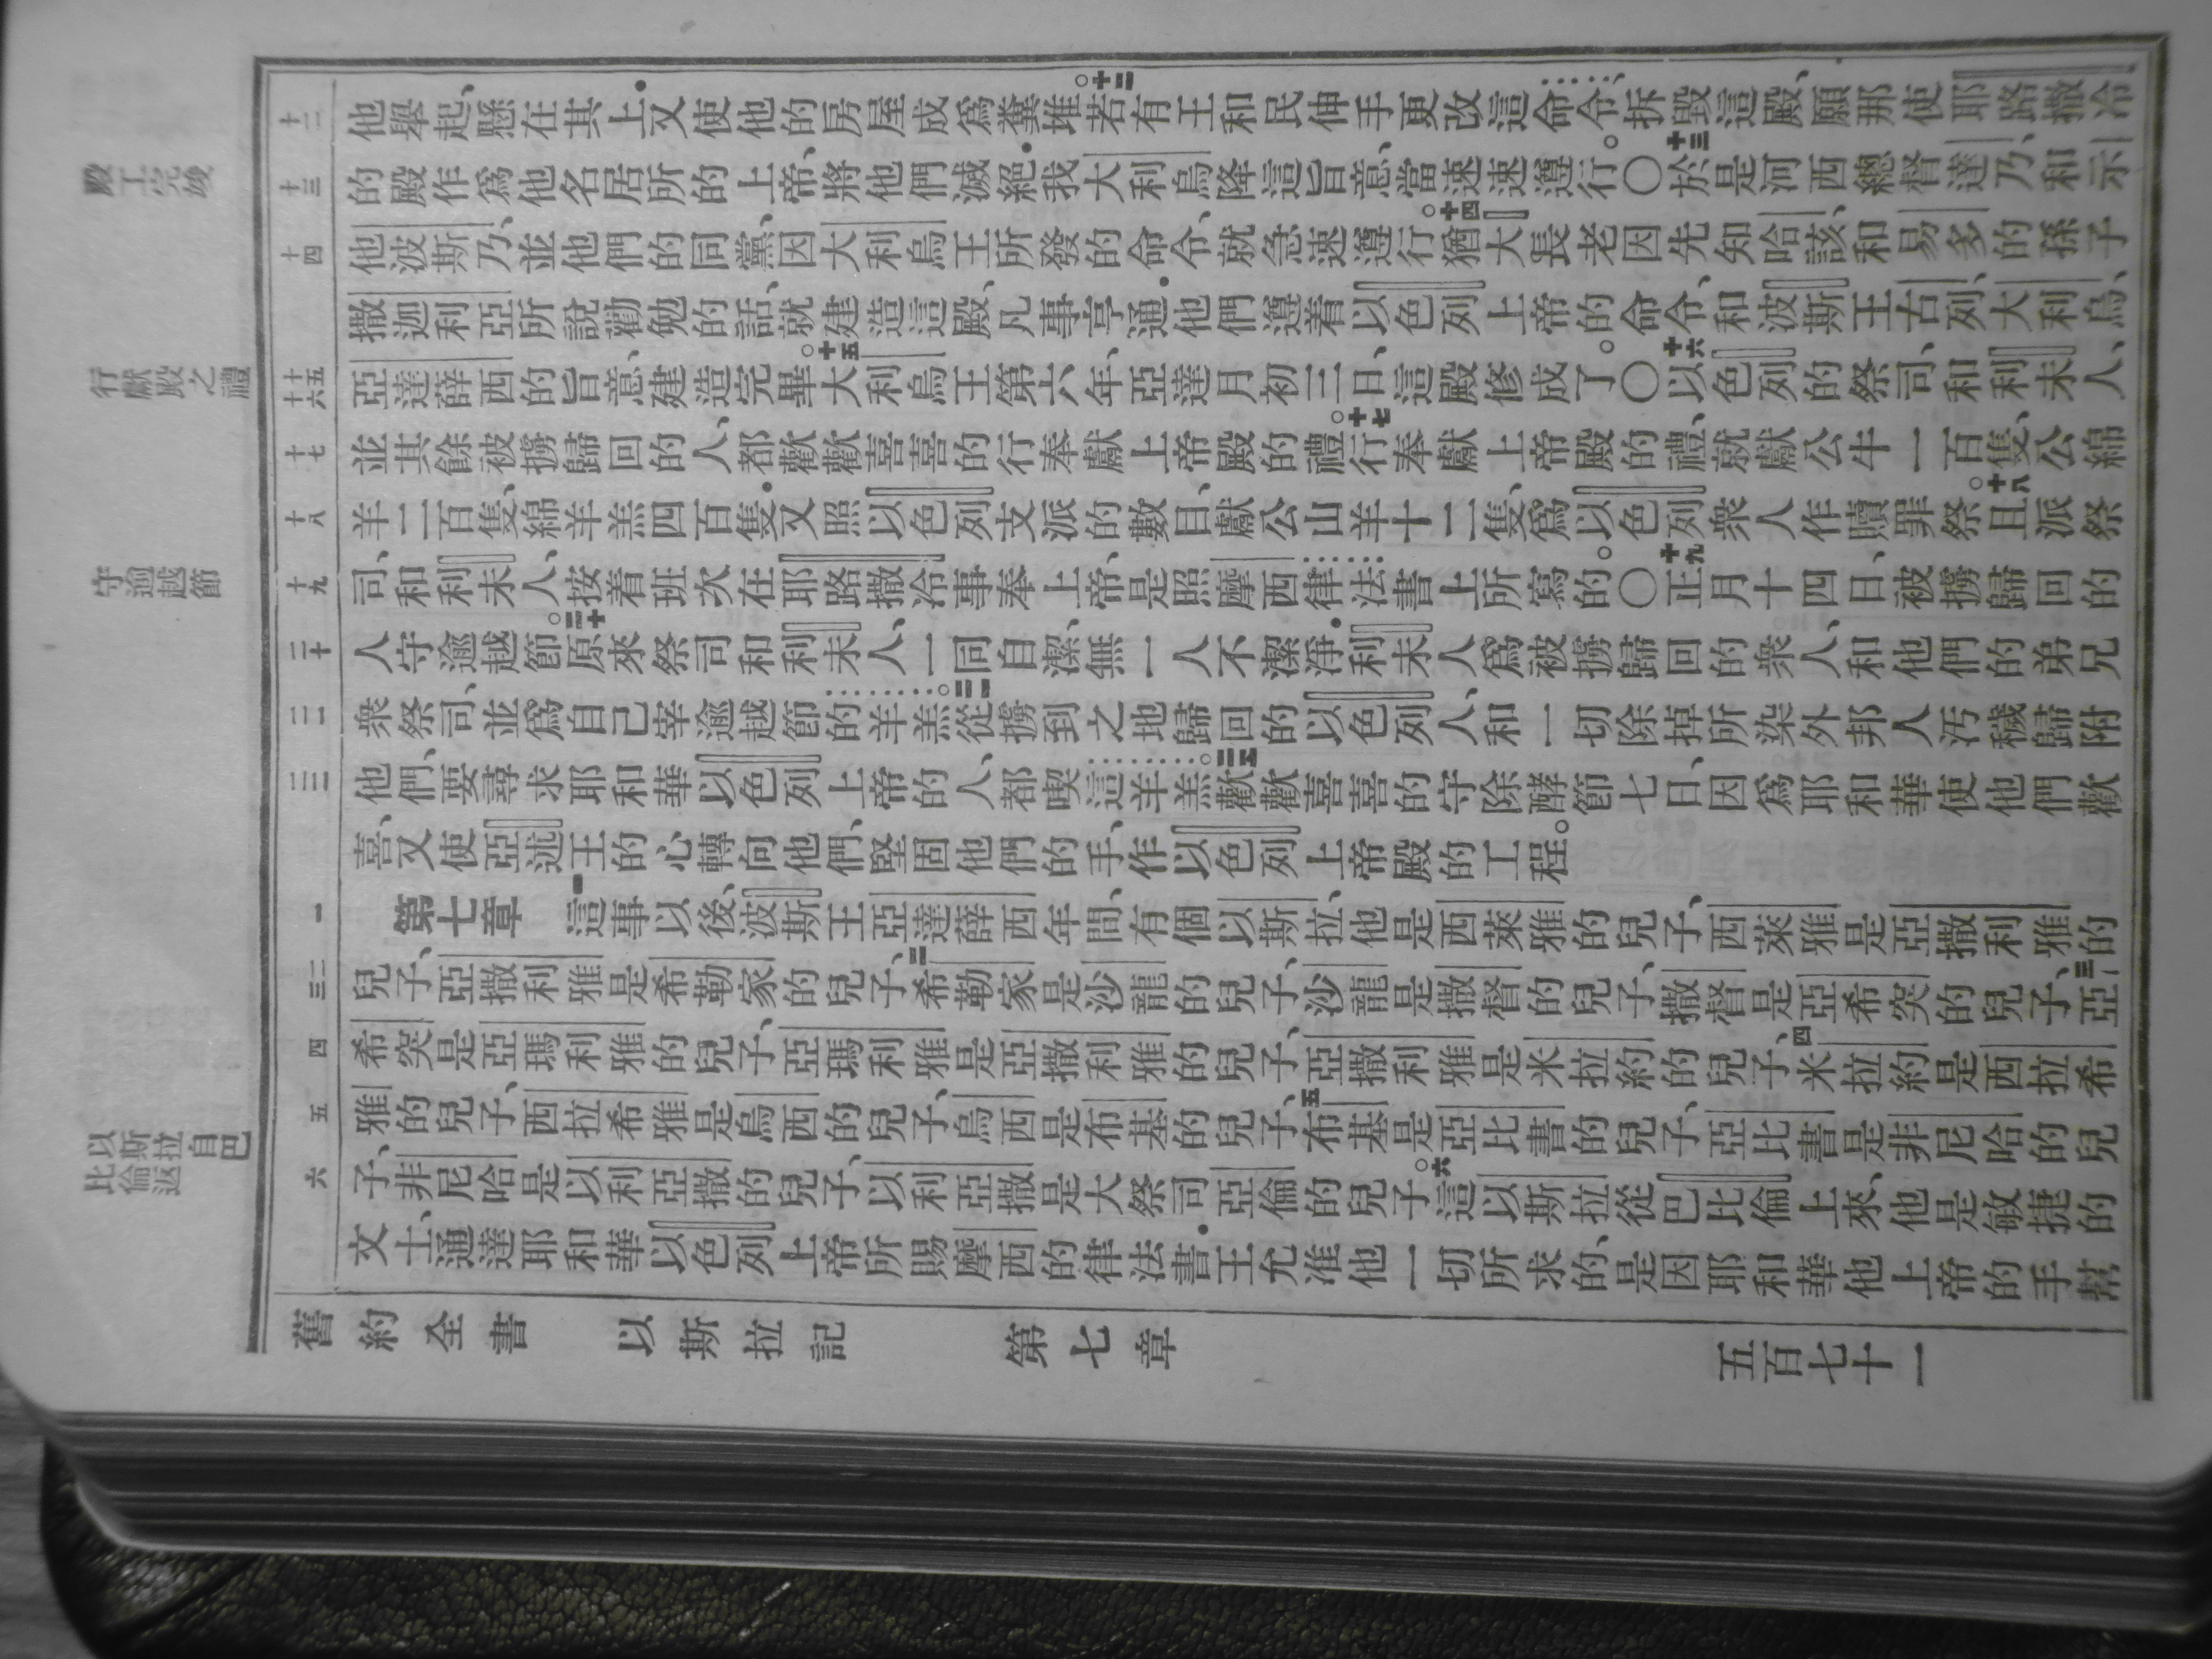 他舉起、懸在其上．又使他的房屋成爲糞堆。十二若有王和民伸手更改這命令、拆毀這殿、願那使耶路撒冷
的殿作爲他名居所的上帝、將他們滅絕．我大利烏降這旨意、當速速遵行。〇十三於是河西總督達乃、和示
他波斯乃、並他們的同黨、因大利烏王所發的命令、就急速遵行。十四猶大長老因先知哈該、和易多的孫子
撒迦利亞所說勸勉的話、就建造這殿、凡事亨通．他們遵着以色列上帝的命令、和波斯王古列、大利烏、
亞達薛西的旨意、建造完畢。十五大利烏王第六年、亞達月初三日、這殿修成了。〇十六以色列的祭司、和利未人、
並其餘被擄歸回的人、都歡歡喜喜的行奉獻上帝殿的禮。十七行奉獻上帝殿的禮、就獻公牛一百隻、公綿
羊二百隻、綿羊羔四百隻．又照以色列支派的數目、獻公山羊十二隻、爲以色列衆人作贖罪祭。十八且派祭
司、和利未人、按着班次在耶路撒冷事奉上帝、是照摩西律法書上所寫的。〇十九正月十四日、被擄歸回的
人守逾越節。二十原來祭司和利未人、一同自潔、無一人不潔淨．利未人爲被擄歸回的衆人、和他們的弟兄
衆祭司、並爲自己宰逾越節的羊羔。二一從擄到之地歸回的以色列人、和一切除掉所染外邦人汚穢歸附
他們、要尋求耶和華以色列上帝的人、都喫這羊羔。二二歡歡喜喜的守除酵節七日、因爲耶和華使他們歡
喜、又使亞述王的心轉向他們、堅固他們的手、作以色列上帝殿的工程。
第七章　一這事以後、波斯王亞達薛西年間、有個以斯拉、他是西萊雅的兒子、西萊雅是亞撒利雅的
兒子、亞撒利雅是希勒家的兒子、二希勒家是沙龍的兒子、沙龍是撒督的兒子、撒督是亞希突的兒子、三亞
希突是亞瑪利雅的兒子、亞瑪利雅是亞撒利雅的兒子、亞撒利雅是米拉約的兒子、四米拉約是西拉希
雅的兒子、西拉希雅是烏西的兒子、烏西是布基的兒子、五布基是亞比書的兒子、亞比書是非尼哈的兒
子、非尼哈是以利亞撒的兒子、以利亞撒是大祭司亞倫的兒子。六這以斯拉從巴比倫上來、他是敏捷的
文士、通達耶和華以色列上帝所賜摩西的律法書．王允准他一切所求的、是因耶和華他上帝的手幫
舊約全書　以斯拉記　第七章　五百七十一
十二
十三
十四
十五
十六
十七
十八
十九
二十
二一
二二
一
二
三
四
五
六
殿工完竣
行獻殿之禮
守逾越節
以斯拉自巴
比倫返